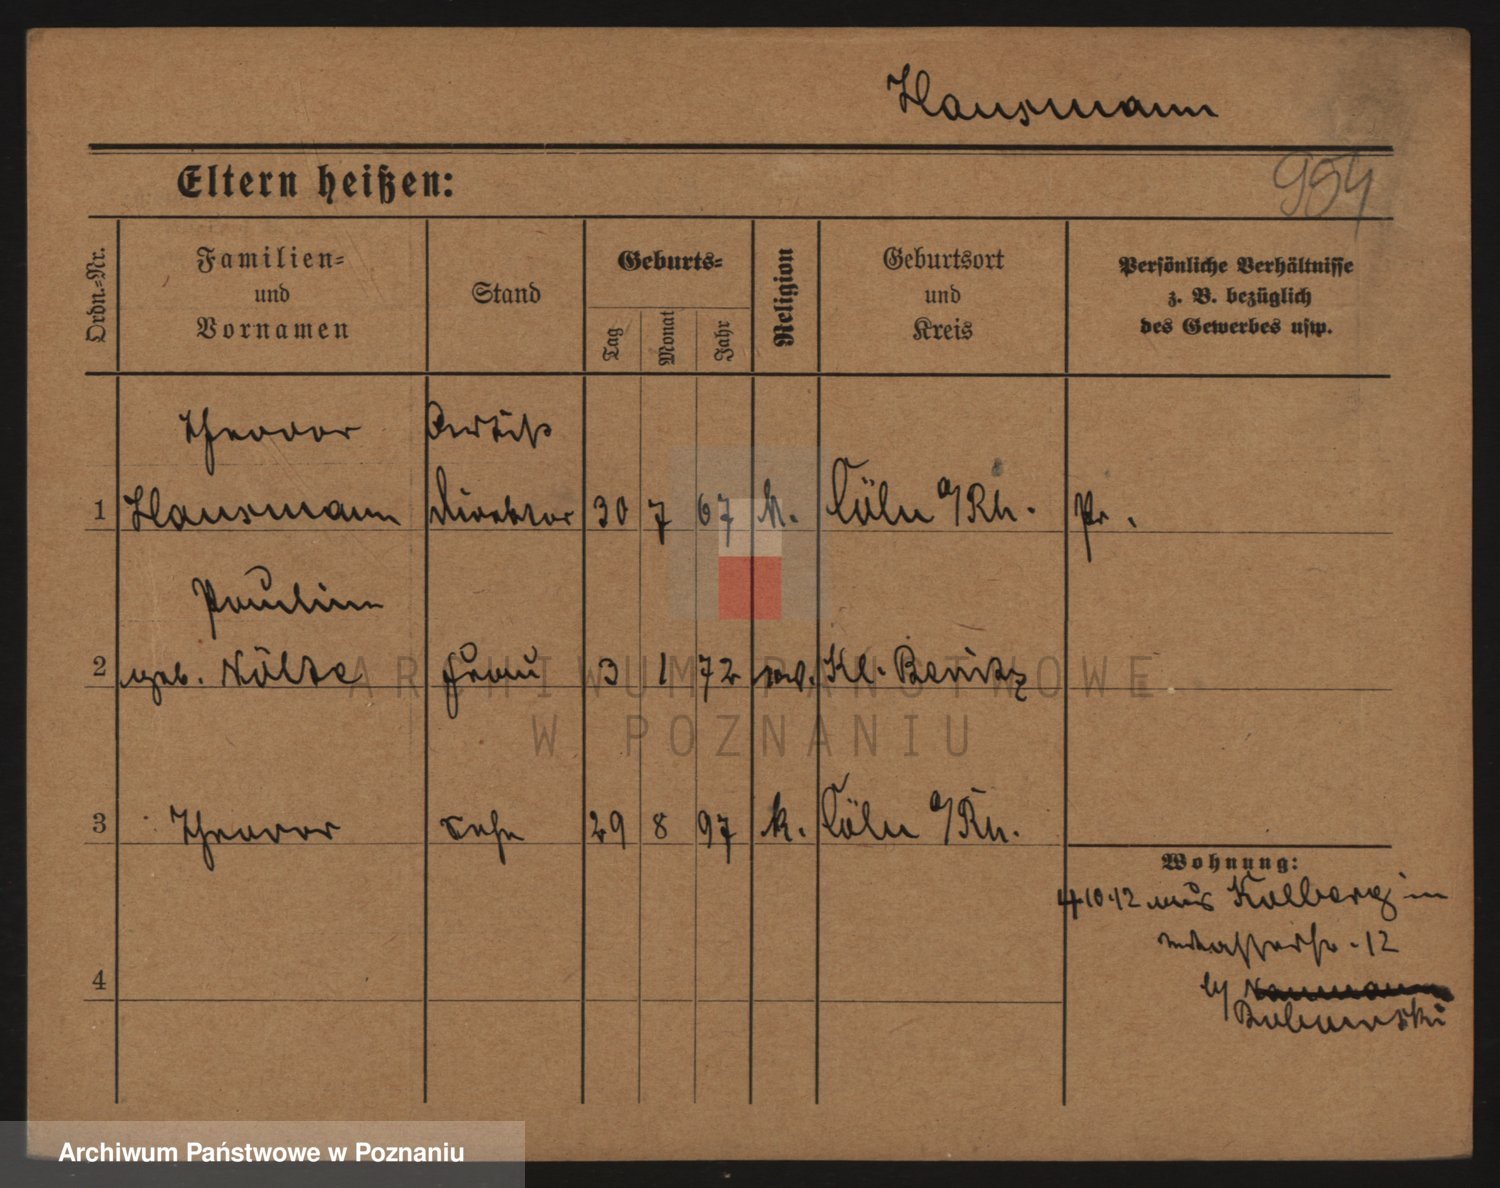 Hausmann
954
Eltern heißen:
Ordn.-Nr.
Familien-
und
Vornamen
Stand
Geburts-
Tag
Monat
Jahr
Religion
Geburtsort
und
Kreis
Persönliche Verhältnisse
z. B. bezüglich
des Gewerbes usw.
Theodor
1 Hausmann Direktor 30 7 67 k. Cöln a/Rh. Pr.
Pauline
2 geb. Nölte Frau 3 1 72 Kl.
3 Theodor Sohn 29 8 97 k. Cöln a/Rh.
4
Wohnung:
4.10.12 aus Kolberg in
12
Naumann
ARCHIWUM PAŃSTWOWE
W POZNANIU
Archiwum Państwowe w Poznaniu